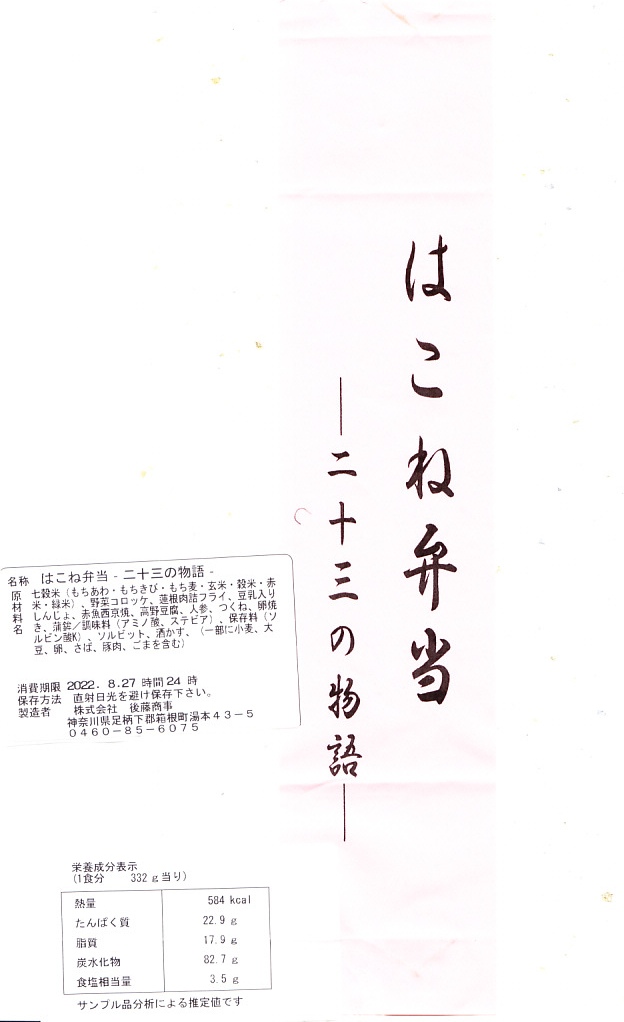 はこね弁当
―二十三の物語―
名称 はこね弁当 - 二十三の物語 -
原材料名 七穀米（もちあわ・もちきび・もち麦・玄米・穀米・赤
米・緑米）、野菜コロッケ、蓮根肉詰フライ、豆乳入り
しんじょ、赤魚西京焼、高野豆腐、人参、つくね、卵焼
き、蒲鉾／調味料（アミノ酸、ステビア）、保存料（ソ
ルビン酸K）、ソルビット、酒かす、（一部に小麦、大
豆、卵、さば、豚肉、ごまを含む）
消費期限 2022. 8.27 時間 24 時
保存方法 直射日光を避け保存下さい。
製造者 株式会社 後藤商事
神奈川県足柄下郡箱根町湯本４３－５
０４６０－８５－６０７５
栄養成分表示
(1食分 332ｇ当り)
熱量 584 kcal
たんぱく質 22.9 g
脂質 17.9 g
炭水化物 82.7 g
食塩相当量 3.5 g
サンプル品分析による推定値です